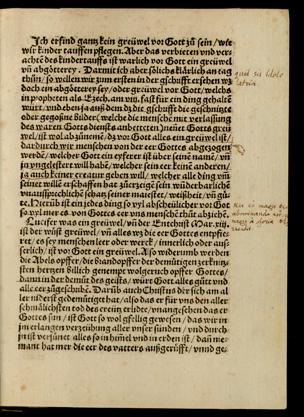 Ich erfind gantz kein greüwel vor Gott zů sein / wie
wir kinder tauffen pflegen. Aber das verbieten und ver
achte des kindertauffs ist warlich vor Gott ein greüwel
vñ abgötterey. Darmit ich aber sölichs klärlich an tag
thün / so wellen wir zum ersten in der gschrifft ersehen wz
doch ein abgötterey sey / oder greüwel vor Gott / welchs
im propheten als Ezech. am viij. fast für ein ding gehalte
würt. vnd eben ja auß dem dz die gschrifft die geschnitzte
oder gegoßne bilder (welche die mensche mit verlassung
des waren Gotts diensts anbettetten) nenet Gotts greü
wel / ist wol abzünemen / das vor Gott alles ein greüwel ist /
dardurch wir menschen von der eer Gottes abgezogen
werde / welcher Gott ein eyferer ist über seine name / vñ
in yngeleistert will habe / welcher sein eer keine anderen /
ja auch keiner creatur geben will / welcher alle ding vm
seiner wille erschaffen hat zur erzeigung sein wunderbarliche
vnaussprechliche schatz seiner maiestet / wyßheit / vñ gü
te. Hierüb ist ein jedes ding so vyl abscheülicher vor Got
so vyl mer es von Gottes eer vns menschen thüt abziehe.
Lucifer was ein greüwel / vnd der Entchrist Mar. xiij.
ist der wüst greüwel / vñ alles wz die eer Gottes entpfie
ret / es sey menschen leer oder werck / innerlich oder aus-
serlich / ist vor Gott ein greüwel. Also widerumb werden
die Abels opffer / die brandopffer der demütigen zerknir
sten hertzen billich genempt wolgeruch opffer Gottes /
dann in der demüt des geists / würt Gott alles güts vnd
alle eer zügeschribe. Darüb auch Christus der sich am al
ler niderst gedemütiget hat / also das er für vns den aller
schmälichsten tod des creütz erlide / vnangesehen das er
Gottes sun / ist Gott so wol gefellig gewesen / das wir in
jm erlangen verzeyhung aller vnser sünden / vnd durch
jn ist versünet alles so in himel vnd in erden ist / dañ nie-
mant hat mer die eer des vatters außgerüfft / vnnd ge-
quid sit Idolo
latria.